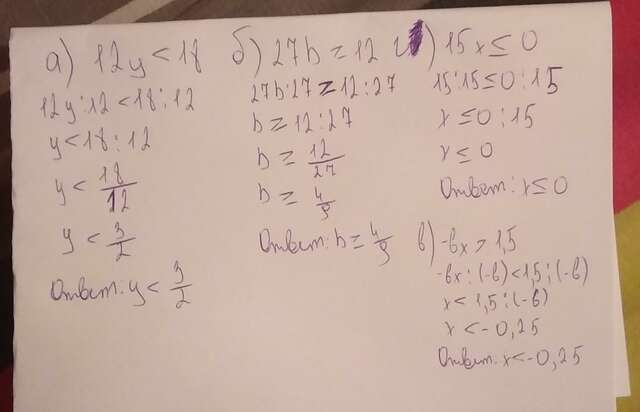 а) 12y < 18
12y : 12 < 18 : 12
y < 18 : 12
y < 18/12
y < 3/2
Ответ: y < 3/2
б) 27b ≥ 12
27b : 27 ≥ 12 : 27
b ≥ 12 : 27
b ≥ 12/27
b ≥ 4/9
Ответ: b ≥ 4/9
) 15x ≤ 0
15 : 15 ≤ 0 : 15
x ≤ 0 : 15
x ≤ 0
Ответ: x ≤ 0
в) -6x > 1,5
-6x : (-6) < 1,5 : (-6)
x < 1,5 : (-6)
x < -0,25
Ответ: x < -0,25